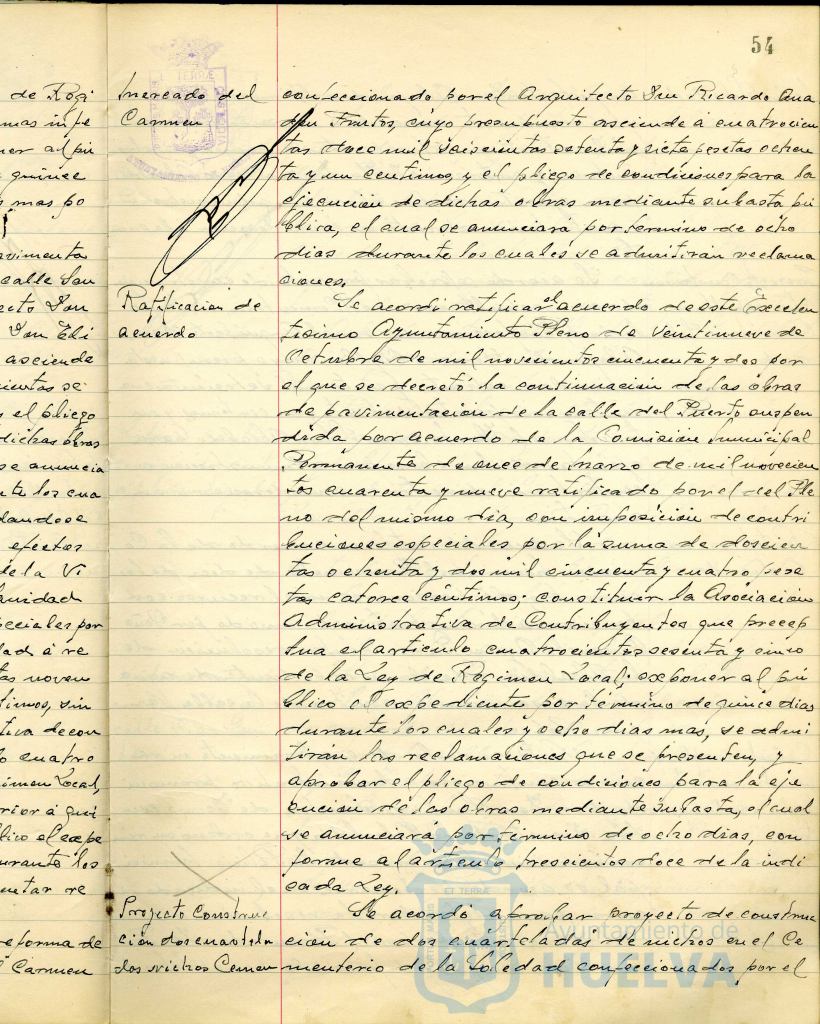 54
de Regi
mas in pe
ner al pú
quince
mas po
avimenta
calle San
ecto Don
Don Eli
asciende
ientas se
s el pliego
dichas obras
se anuncia
nte los cua
dandose
efectos
de la Vi
anidad
peciales por
dad á re
tas noven
timos, sin
tiva de con
o cuatro
gimen Local,
erior á qui
blico el expe
urante los
entar re
reforma de
l Carmen
Mercado del
Carmen
Ratificación de
acuerdo
Proyecto Construc
ción dos cuartela
das nichos Cemen
confeccionado por el Arquitecto Don Ricardo Ana
dón Frutos, cuyo presupuesto asciende á cuatrocien
tas doce mil seiscientas setenta y siete pesetas ochen
ta y un centimos, y el pliego de condiciones para la
ejecución de dichas obras mediante subasta pú
blica, el cual se anunciará por termino de ocho
dias durante los cuales se admitirán reclama
ciones.
Se acordó ratificar el acuerdo de este Excelen
tisimo Ayuntamiento Pleno de veintinueve de
Octubre de mil novecientos cincuenta y dos por
el que se decretó la continuación de las obras
de pavimentación de la calle del Puerto suspen
dida por acuerdo de la Comisión Municipal
Permanente de once de Marzo de mil novecien
tos cuarenta y nueve ratificado por el del Ple
no del mismo dia, con imposición de contri
buciones especiales por la suma de doscien
tas ochenta y dos mil cincuenta y cuatro pese
tas catorce céntimos; constituir la Asociación
Administrativa de Contribuyentes que precep
tua el articulo cuatrocientos sesenta y cinco
de la Ley de Regimen Local; exponer al pú
blico el expediente por término de quince dias
durante los cuales y ocho dias mas, se admi
tirán las reclamaciones que se presenten, y
aprobar el pliego de condiciones para la eje
cución de las obras mediante subasta, el cual
se anunciará por término de ocho dias, con
forme al articulo trescientos doce de la indi
cada Ley.
Se acordó aprobar proyecto de construc
ción de dos cuarteladas de nichos en el Ce
menterio de la Soledad confeccionados por el
Ayuntamiento de
HUELVA